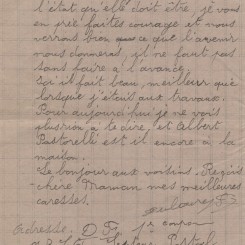 l'état qu'elle doit être, je vous
en prie faites courage et nous
verrons bien que ce que l'avenir
nous donnerai, il ne faut pas
sans faire a l'avance.
Ici il fait beau, meilleur que
lorsque j'étais aux travaux.
Pour aujourd'hui je ne vois
plus rien a te dire, et Albert
Pastorelli est il encore a la
maison.
Le bonjour aux voisins. Reçois
chere Maman mes meilleures
caresses.
Adresse. D F 1e